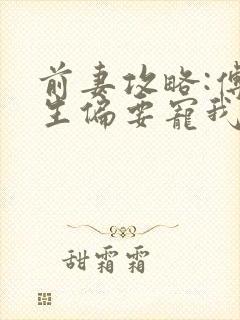 前妻攻略:傅
生偏要宠我
甜霜霜